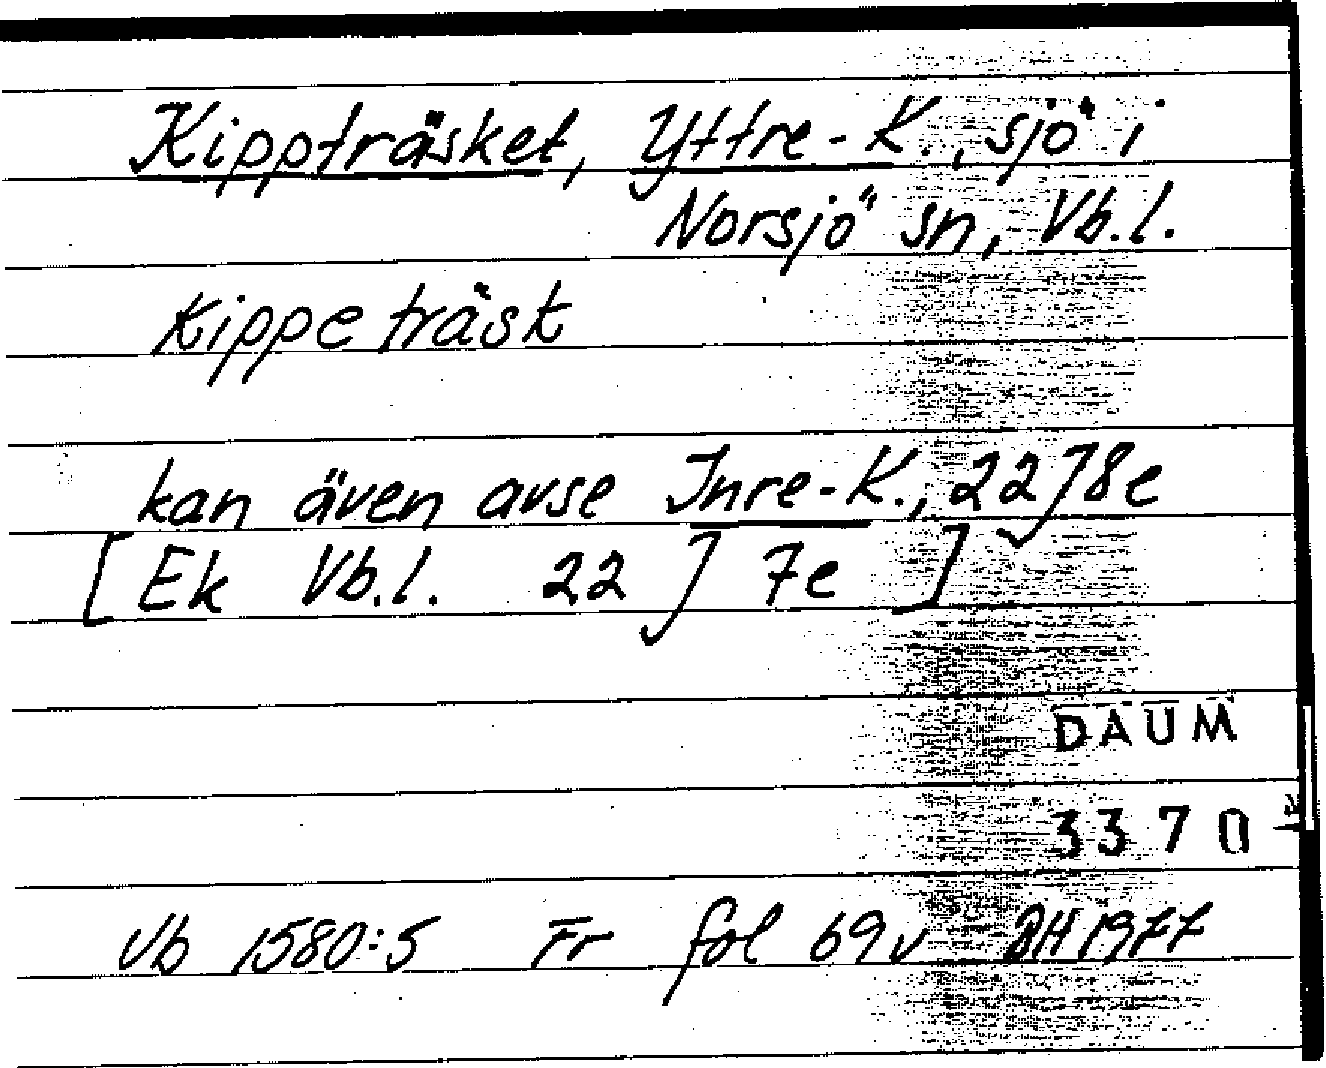 Kippträsket, Yttre-K., sjö i
Norsjö sn, Vb.l.
Kippeträsk
kan även avse Inre-K., 22J8e
[Ek Vb.l. 22 J 7e ]
DAUM
3370
Vb 1580:5 Fr fol 69v 1977